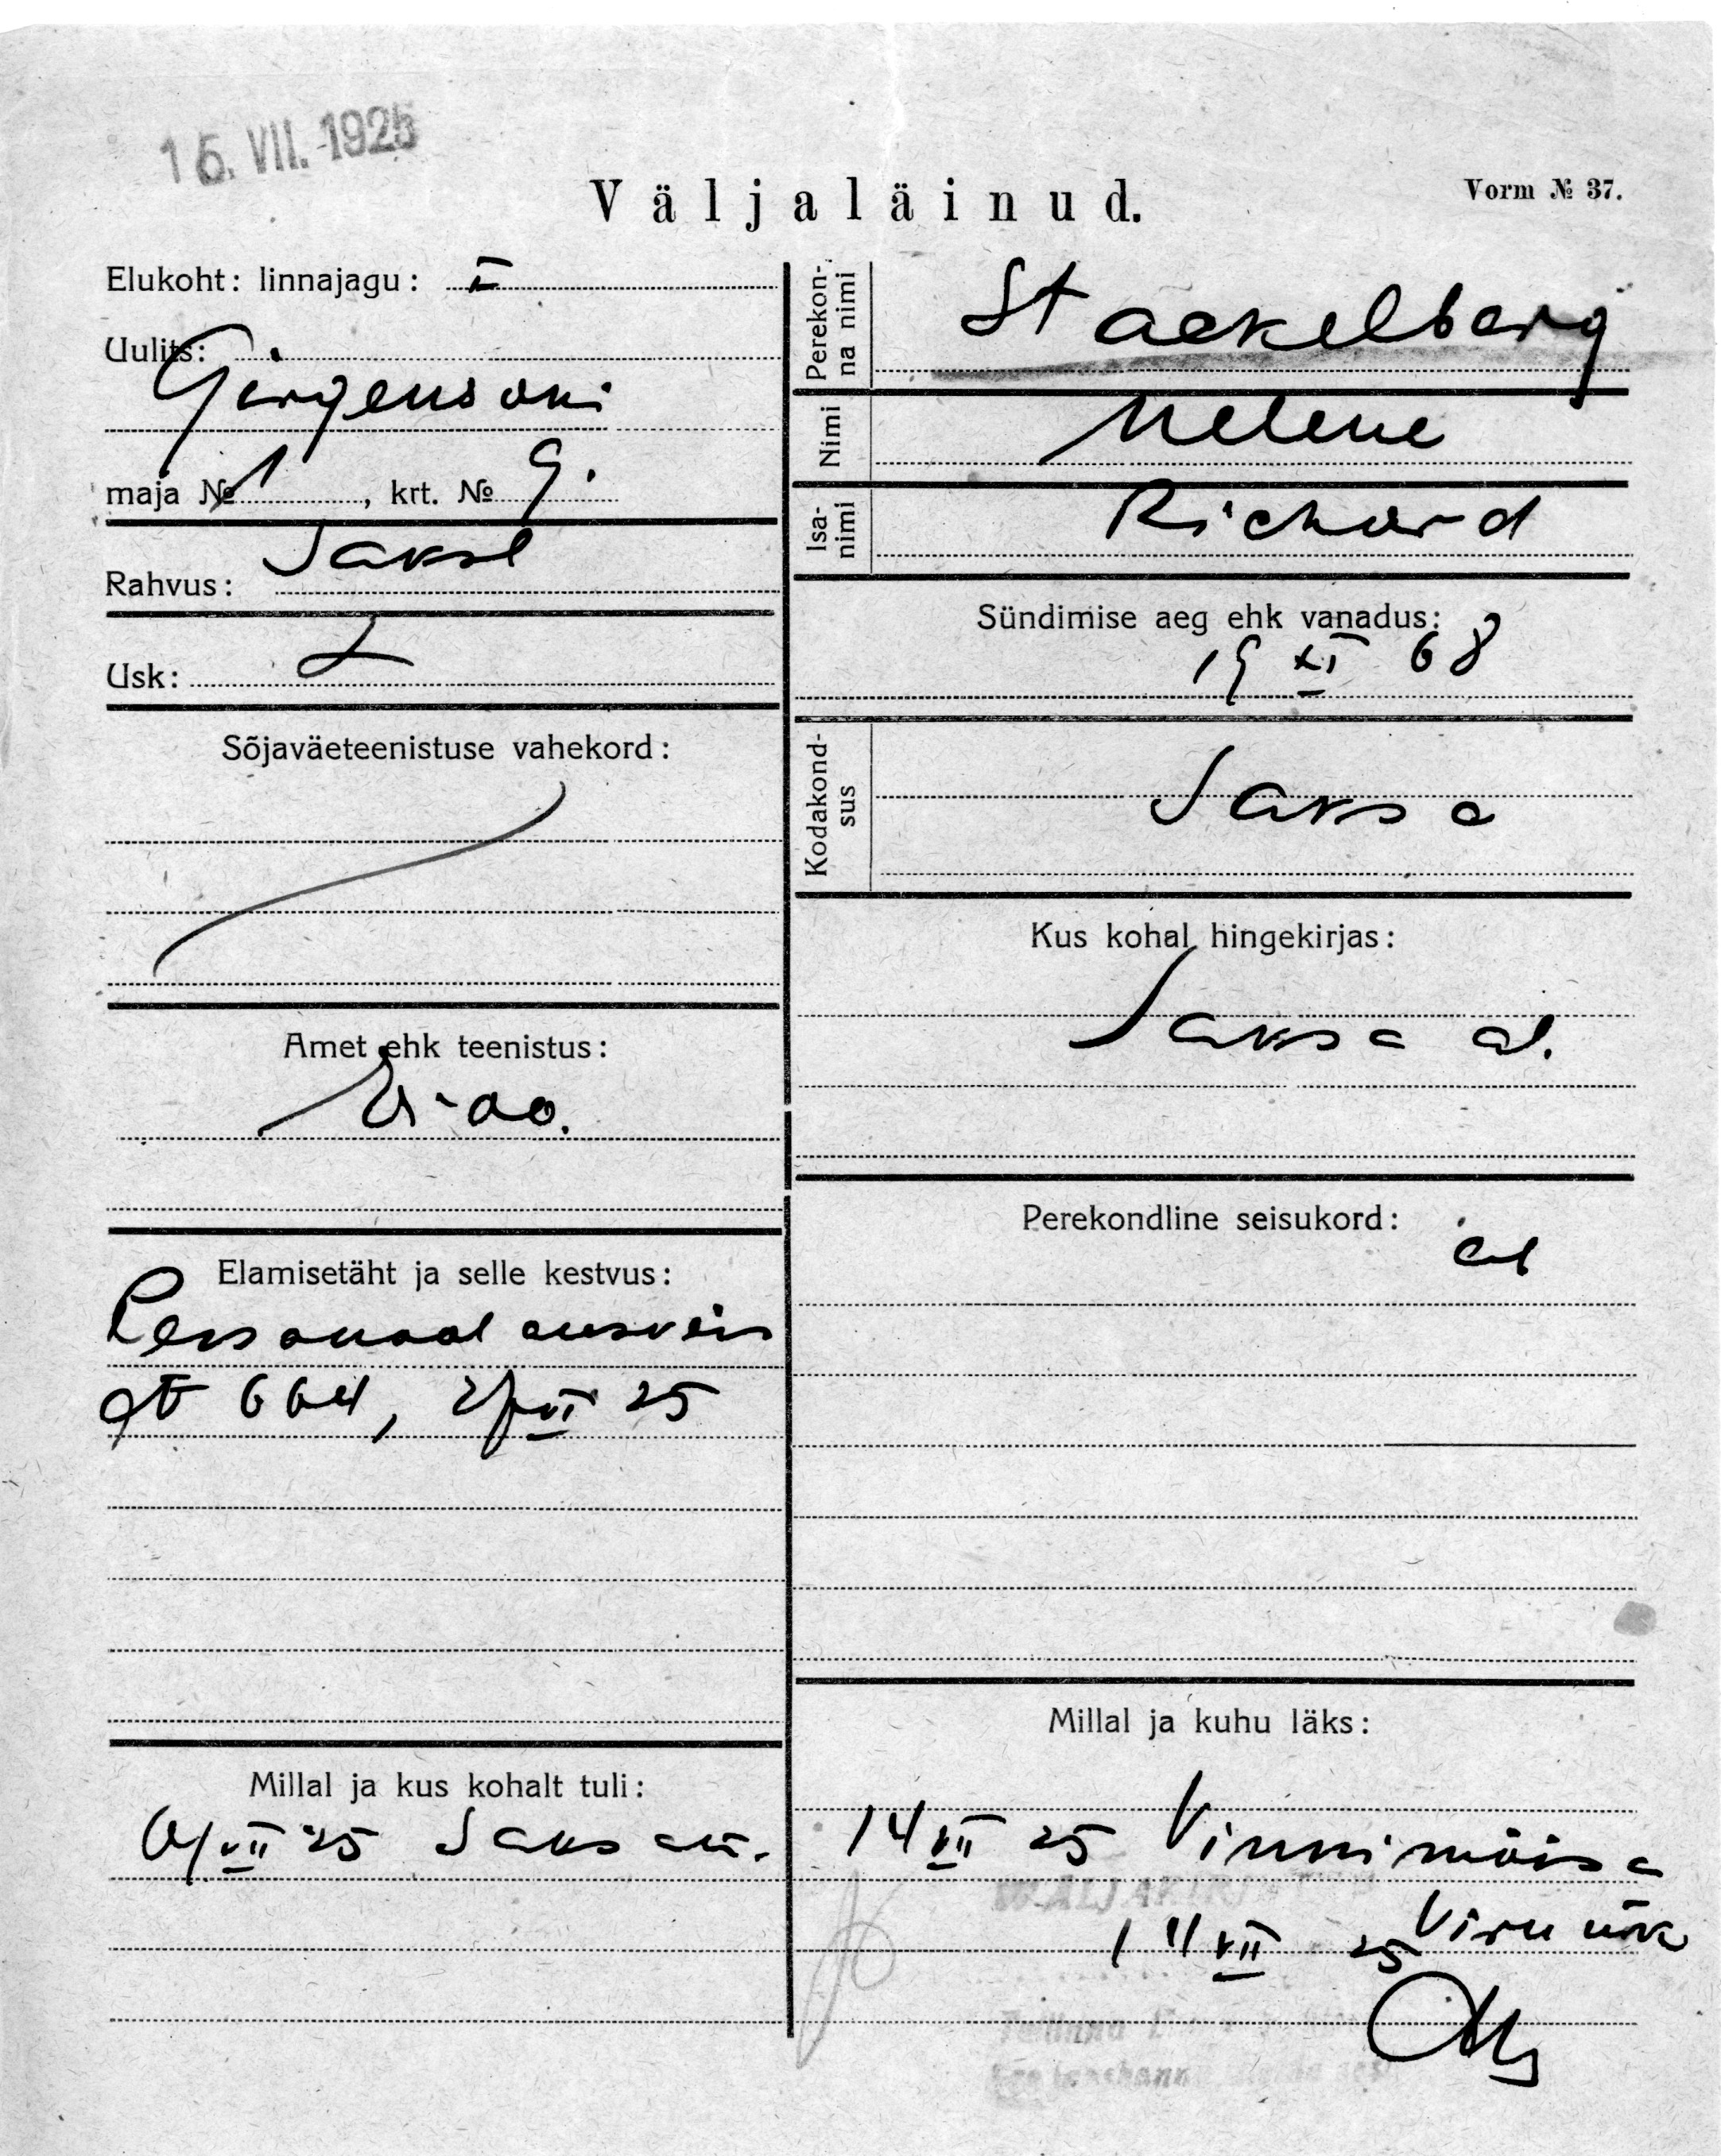 15. VII. 1925
Väljaläinud.
Vorm № 37.
Elukoht: linnajagu: I
Uulits:
Girgensoni
maja № 1, krt. № 9.
Rahvus: Saksl
Usk: L
Sõjaväeteenistuse vahekord:
Amet ehk teenistus:
Elamisetäht ja selle kestvus:
Personaal ausveis
№ 664, VI 25
Millal ja kus kohalt tuli:
VII 25 Saksam.
Perekonna nimi
Stackelberg
Nimi
Helene
Isanimi
Richard
Sündimise aeg ehk vanadus:
19 XI 68
Kodakondsus
Saksa
Kus kohal hingekirjas:
Saksa al.
Perekondline seisukord:
Millal ja kuhu läks:
14 VII 25 Vinni mõisa
WÄLJAKIRJ
Viru
14 VII 25
Tallinna